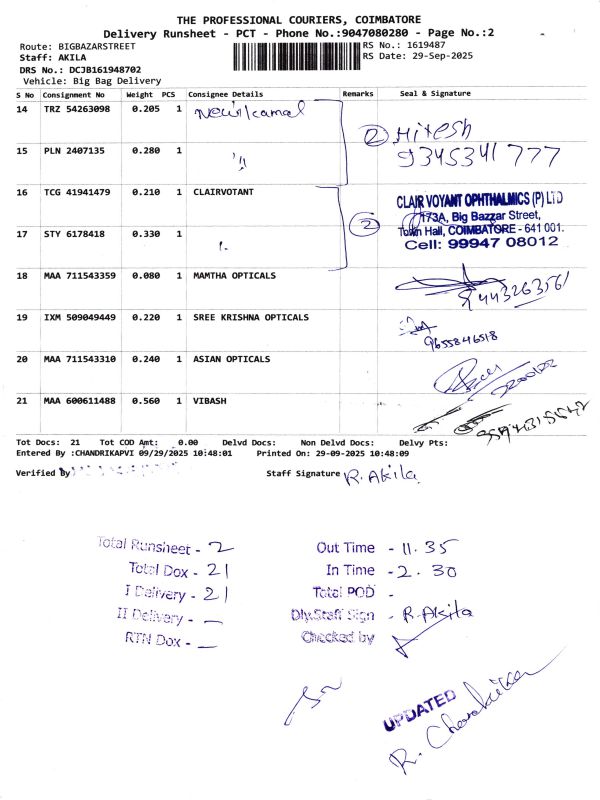 THE PROFESSIONAL COURIERS, COIMBATORE
Delivery Runsheet - PCT - Phone No.:9047080280 - Page No.:2
Route: BIGBAZARSTREET
RS No.: 1619487
Staff: AKILA
RS Date: 29-Sep-2025
DRS No.: DCJB161948702
Vehicle: Big Bag Delivery
S No Consignment No Weight PCS Consignee Details Remarks Seal & Signature
14 TRZ 54263098 0.205 1
2 Hitesh
9345341777
15 PLN 2407135 0.280 1 "
16 TCG 41941479 0.210 1 CLAIRVOTANT
2
CLAIR VOYANT OPHTHALMICS (P) LTD
173A, Big Bazzar Street,
Town Hall, COIMBATORE - 641 001.
Cell: 99947 08012
17 STY 6178418 0.330 1
18 MAA 711543359 0.080 1 MAMTHA OPTICALS
19 IXM 509049449 0.220 1 SREE KRISHNA OPTICALS
9655846518
20 MAA 711543310 0.240 1 ASIAN OPTICALS
21 MAA 600611488 0.560 1 VIBASH
Tot Docs: 21 Tot COD Amt: 0.00 Delvd Docs: Non Delvd Docs: Delvy Pts:
Entered By :CHANDRIKAPVI 09/29/2025 10:48:01 Printed On: 29-09-2025 10:48:09
Verified By Staff Signature R. Akila
Total Runsheet - 2
Total Dox - 21
I Delivery - 21
II Delivery - —
RTN Dox - —
Out Time - 11.35
In Time - 2.30
Total POD -
Dly.Staff Sign - R. Akila
Checked by
UPDATED